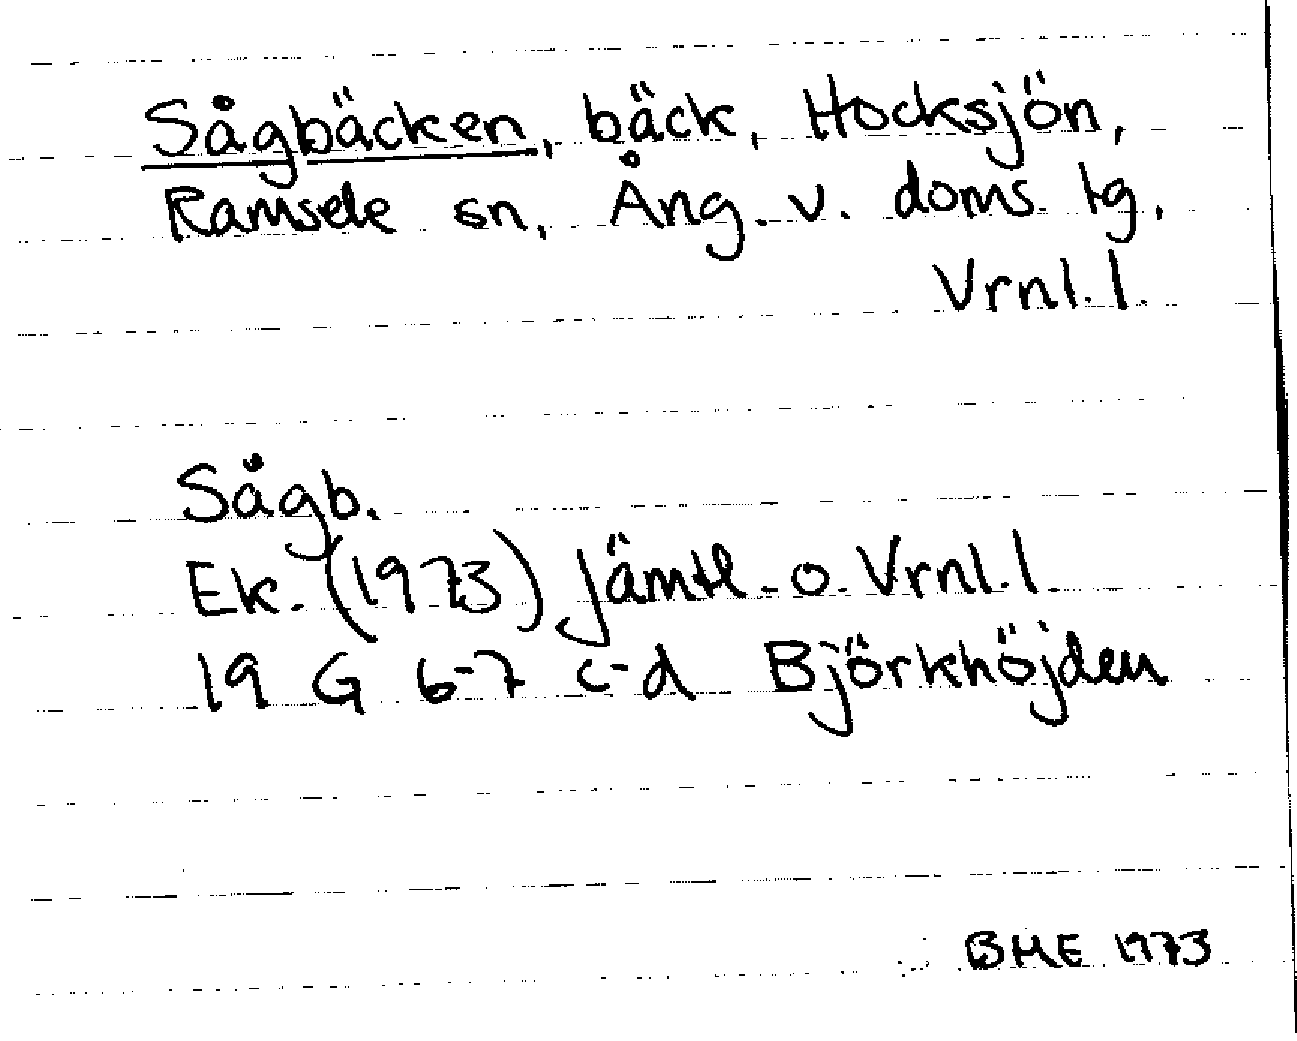 Sågbäcken, bäck, Hocksjön,
Ramsele sn, Ång. v. doms. tg,
Vrnl. l.
Sågb.
Ek. (1973) Jämtl. o. Vrnl. l
19 G 6-7 c-d Björkhöjden
BME 1973